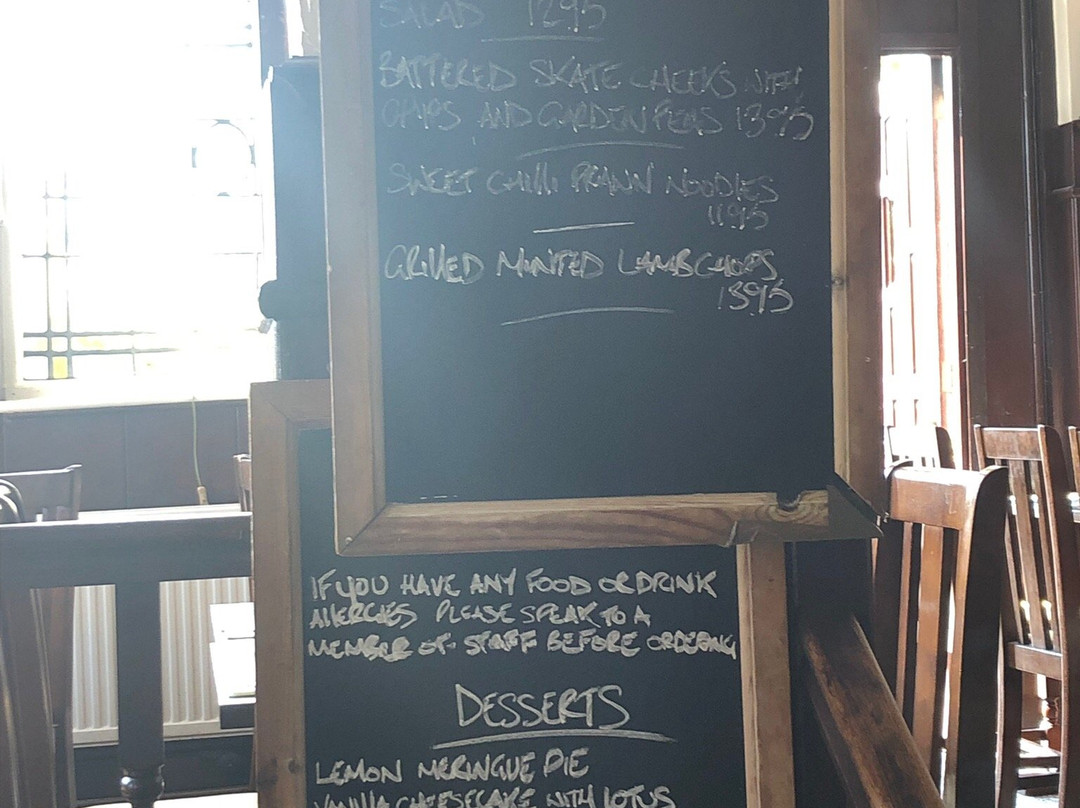 SALAD 1295
BATTERED SKATE CHEEKS WITH
CHIPS AND GARDEN PEAS 1395
SWEET CHILLI PRAWN NOODLES
1195
GRILLED MINTED LAMB CHOPS
1395
IF YOU HAVE ANY FOOD OR DRINK
ALLERGIES PLEASE SPEAK TO A
MEMBER OF STAFF BEFORE ORDERING
DESSERTS
LEMON MERINGUE PIE
VANILLA CHEESECAKE WITH LOTUS